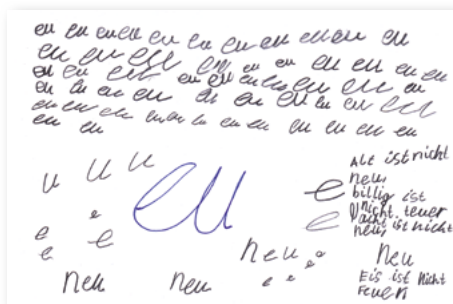 eu eu eueu eu eu eu eu eueu eu
eu eu eu eu eu eu eu eu eu eu
eu eu eu eu eu eu eu eu eu eu
eu eu eu eu eu eu eu eu eu eu
eu eu eu eu eu eu eu eu eu eu eu
eu eu
u u u
eu
e
e
e
e
e
e
Alt ist nicht
neu
billig ist
nicht teuer
neu ist nicht
neu
e e e
neu
neu
neu
Eis ist Nicht
Feuer